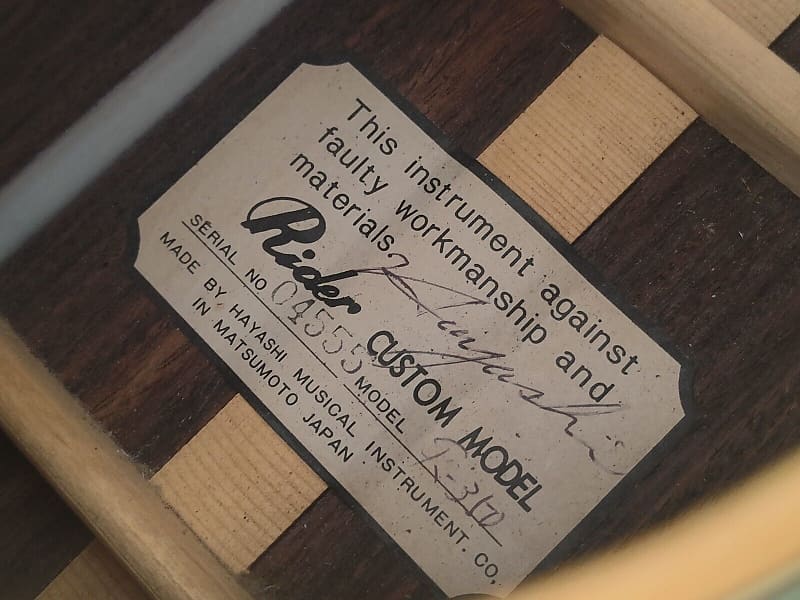 This instrument against
faulty workmanship and
materials.
Rider CUSTOM MODEL
SERIAL NO 04555 MODEL
MADE BY HAYASHI MUSICAL INSTRUMENT. CO,
IN MATSUMOTO JAPAN